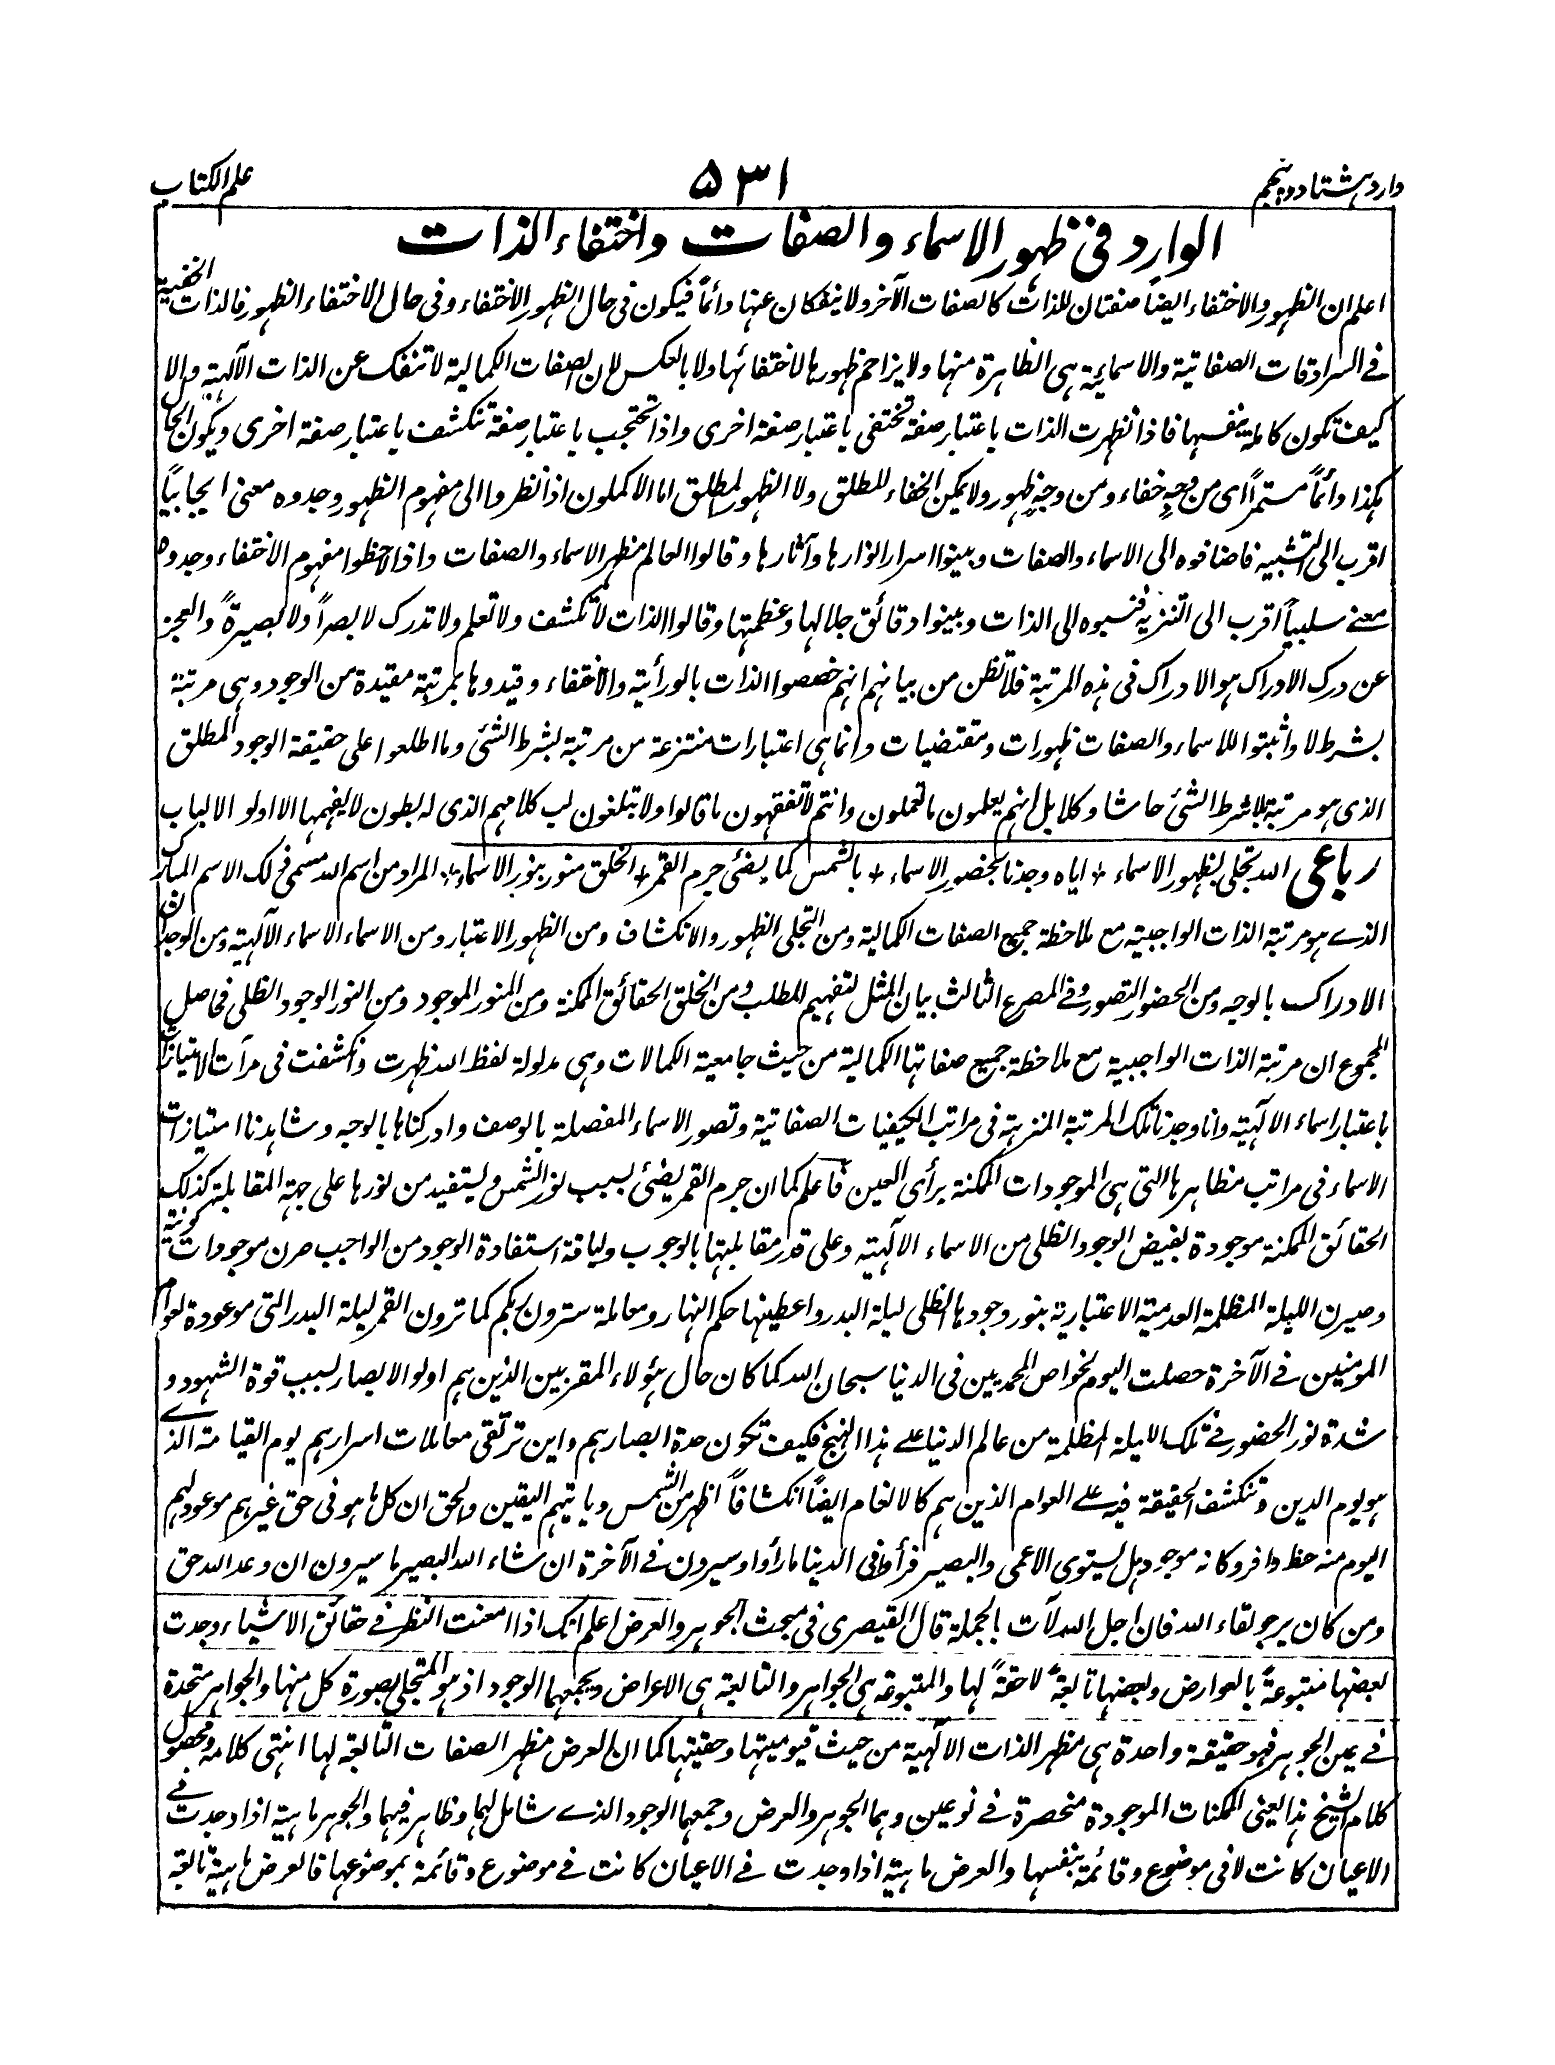 وارد هشتاد و پنجم
۵۳۱
علم الکتاب
الوارد فی ظهور الاسماء والصفات واختفاء الذات
اعلم ان الظهور والاختفاء ایضاً صفتان للذات کالصفات الآخر ولا ینفکان عنها دائماً فیکون فی حال الظهور الاختفاء وفی حال الاختفاء الظهور فالذات الخفیة
فی السرادقات الصفاتیة والاسمائیة هی الظاهرة منها ولا یزاحم ظهورها لاختفائها ولا بالعکس لان الصفات الکمالیة لا تنفک عن الذات الآلهیة والا
کیف تکون کاملة بنفسها فاذا تظهرت الذات باعتبار صفة تختفی باعتبار صفة اخری واذا تحتجب باعتبار صفة تنکشف باعتبار صفة اخری ویکون الحال
هکذا دائماً مستمراً ای من وجهٍ خفاء ومن وجهٍ ظهور ولا یمکن الخفاء المطلق ولا الظهور المطلق اما الاکملون اذا نظروا الی مفهوم الظهور وجدوه معنی ایجابیاً
اقرب الی التشبیه فاضافوه الی الاسماء والصفات وبینوا اسرار انوارها وآثارها وقالوا العالم مظهر الاسماء والصفات واذا لاحظوا مفهوم الاختفاء وجدوه
معنے سلبیاً اقرب الی التنزیه فنسبوه الی الذات وبینوا دقائق جلالها وعظمتها وقالوا الذات لا تکشف ولا تعلم ولا تدرک لا بصراً ولا بصیرةً والعجز
عن درک الادراک هو الادراک فی هذه المرتبة فلا تظن من بیانهم انهم خصصوا الذات بالورائیة والاختفاء وقیدوها بمرتبة مقیدة من الوجود وهی مرتبة
بشرط لا واثبتوا للاسماء والصفات ظهورات ومقتضیات وانما هی اعتبارات منتزعة من مرتبة بشرط الشئی وما اطلعوا علی حقیقة الوجود المطلق
الذی هو مرتبة بلا شرط الشئی حاشا وکلا بل انهم یعلمون ما تعملون وانتم لا تفقهون ما قالوا ولا تبلغون لب کلامهم الذی له بطون لا یفهمها الا اولو الالباب
رباعی الله تجلی لظهور الاسماء + ایاه وجدنا بحضور الاسماء + بالشمس کما یضئی جرم القمر + الخلق منور بنور الاسماء + المراد من اسم الله مسمی ذلک الاسم المبارک
الذے هو مرتبة الذات الواجبیة مع ملاحظة جمیع الصفات الکمالیة ومن التجلی الظهور والانکشاف ومن الظهور الاعتبار ومن الاسماء الاسماء الآلهیة ومن الوجدان
الادراک بالوجه ومن الحضور التصور وفی المصرع الثالث بیان المثل لتفهیم المطلب ومن الخلق الحقائق الممکنة ومن المنور الموجود ومن النور الوجود الظلی فحاصل
المجموع ان مرتبة الذات الواجبیة مع ملاحظة جمیع صفاتها الکمالیة من حیث جامعیة الکمالات وهی مدلولة لفظ الله ظهرت وانکشفت فی مرآت الامتیازات
باعتبار اسماء الآلهیة وانا وجدنا تلک المرتبة المنزهة فی مراتب الکیفیات الصفاتیة وتصور الاسماء المفصلة بالوصف وادرکناها بالوجه وشاهدنا امتیازات
الاسماء فی مراتب مظاهرها التی هی الموجودات الممکنة برأی العین فاعلم کما ان جرم القمر یضئی بسبب نور الشمس ویستفید من نورها علی جهة المقابلة کذلک
الحقائق الممکنة موجودة بفیض الوجود الظلی من الاسماء الآلهیة وعلی قدر مقابلتها بالوجوب ولیاقة استفادة الوجود من الواجب صرن موجودات کونیة
وصیرن اللیلة المظلمة العدمیة الاعتباریة بنور وجودها الظلی لیلة البدر واعطینها حکم النهار ومعاملة سترون ربکم کما ترون القمر لیلة البدر التی موعودة لعوام
المومنین فی الآخرة حصلت الیوم لخواص المحمدیین فی الدنیا سبحان الله کما کان حال هؤلاء المقربین الذین هم اولو الابصار بسبب قوة الشهود و
شدة نور الحضور فے تلک اللیلة المظلمة من عالم الدنیا علے هذا النهج فکیف تکون حدة ابصارهم واین ترتقی معاملات اسرارهم یوم القیامة الذے
هو یوم الدین وتنکشف الحقیقة فیه علے العوام الذین هم کالانعام ایضاً انکشافاً اظهر من الشمس ویاتیهم الیقین والحق ان کل ما هو فی حق غیرهم موعود لهم
الیوم منه حظ وافر وکانه موجود هل یستوی الاعمی والبصیر فرأوا فی الدنیا ما رأوا وسیرون فے الآخرة ان شاء الله البصیر ما سیرون ان وعد الله حق
ومن کان یرجو لقاء الله فان اجل الله لآت بالجملة قال القیصری فی مبحث الجوهر والعرض اعلم انک اذا امعنت النظر فے حقائق الاشیاء وجدت
بعضها متبوعةً بالعوارض وبعضها تابعةً لاحقةً لها والمتبوعة هی الجواهر والتابعة هی الاعراض ویجمعهما الوجود اذ هو المتجلی بصورة کل منها والجواهر متحدة
فے عین الجوهر فهو حقیقة واحدة هی مظهر الذات الآلهیة من حیث قیومیتها وحقیتها کما ان العرض مظهر الصفات التابعة لها انتهی کلامه ومحصول
کلام الشیخ هذا یعنی الممکنات الموجودة منحصرة فے نوعین وهما الجوهر والعرض وجمعهما الوجود الذے شامل لهما وظاهر فیهما والجوهر ماهیة اذا وجدت فے
الاعیان کانت لا فی موضوع وقائمة بنفسها والعرض ماهیة اذا وجدت فے الاعیان کانت فے موضوع وقائمة بموضوعها فالعرض ماهیة تابعة